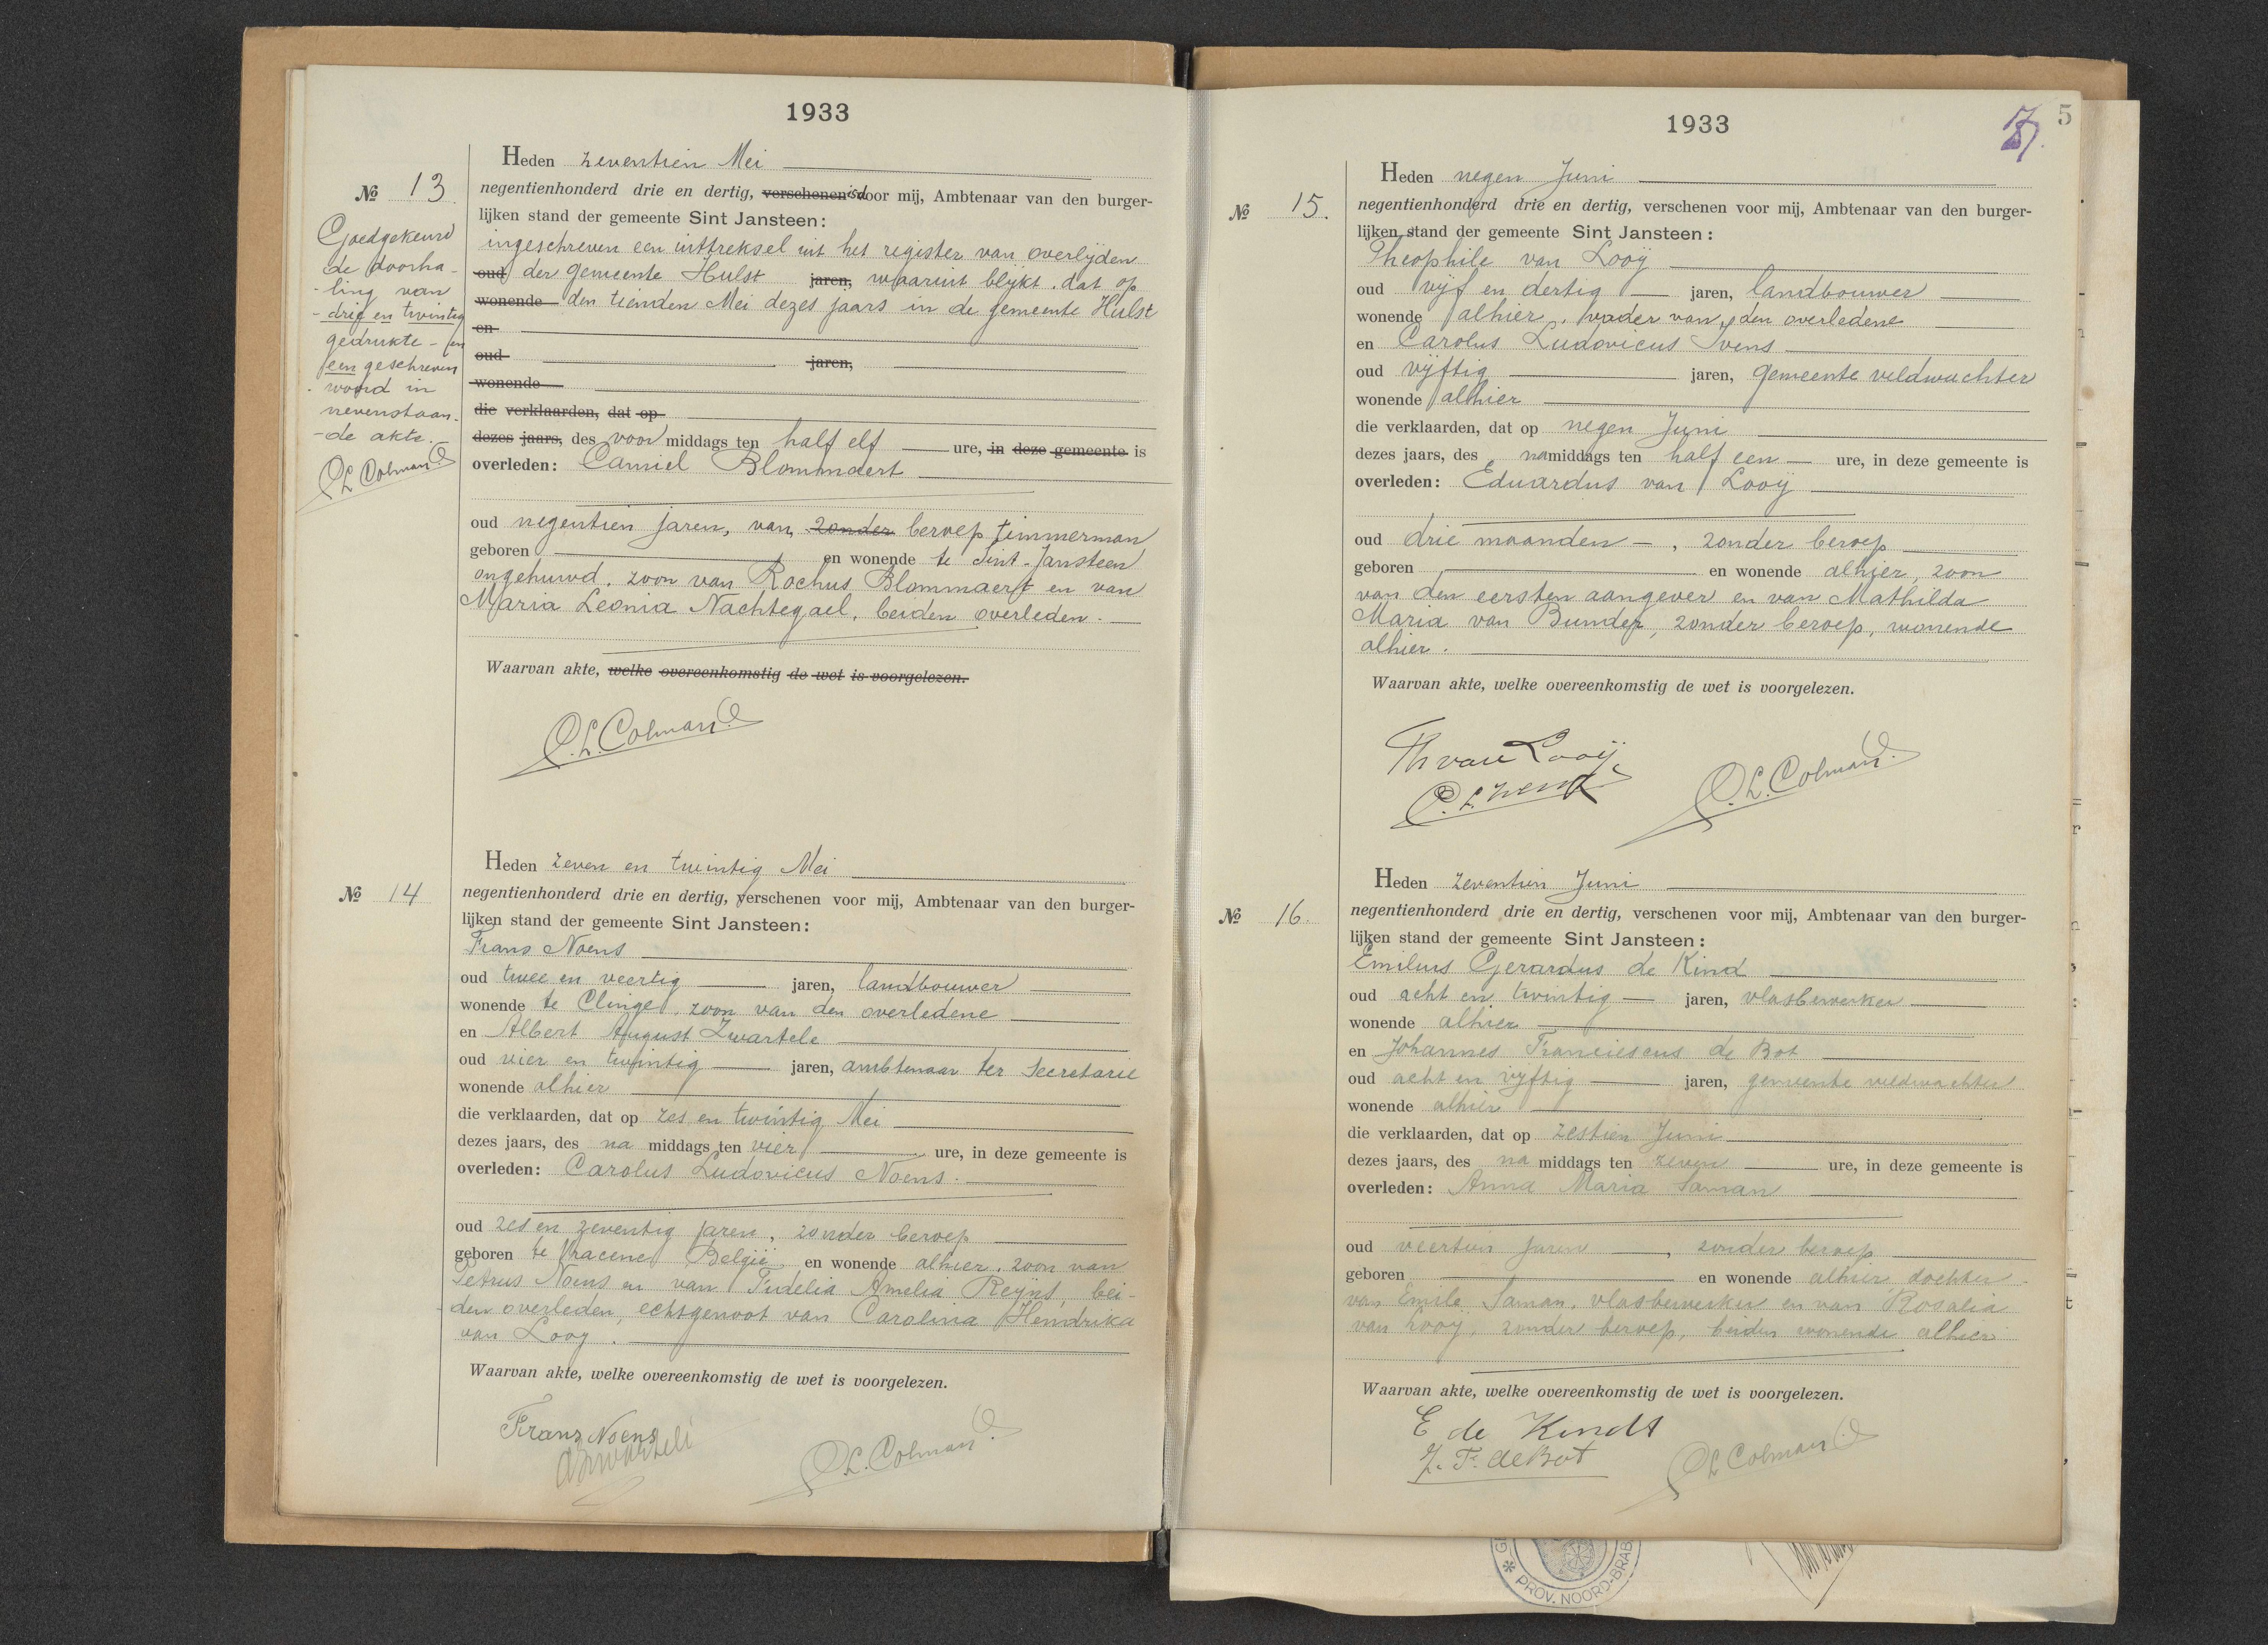 1933
Heden zeventien Mei
No 13
negentienhonderd drie en dertig, verschenen is door mij, Ambtenaar van den burger-
lijken stand der gemeente Sint Jansteen:
ingeschreven een uittreksel uit het register van overlijden
oud der gemeente Hulst jaren, waaruit blijkt, dat op
wonende den tienden Mei dezes jaars in de gemeente Hulst
en
oud jaren,
wonende
die verklaarden, dat op
dezes jaars, des voor middags ten half elf ure, in deze gemeente is
overleden: Camiel Blommaert
oud negentien jaren, van zonder beroep timmerman
geboren en wonende te Sint-Jansteen
ongehuwd, zoon van Rochus Blommaert en van
Maria Leonia Nachtegael, beiden overleden.
Waarvan akte, welke overeenkomstig de wet is voorgelezen.
C.L. Colman
Goedgekeurd
de doorha-
-ling van
-drie en twintig
gedrukte - en
een geschreven
woord in
nevenstaan-
-de akte.
C L Colman
Heden zeven en twintig Mei
No 14
negentienhonderd drie en dertig, verschenen voor mij, Ambtenaar van den burger-
lijken stand der gemeente Sint Jansteen:
Frans Noens
oud twee en veertig jaren, landbouwer
wonende te Clinge, zoon van den overledene
en Albert August Zwartele
oud vier en twintig jaren, ambtenaar ter Secretarie
wonende alhier
die verklaarden, dat op zes en twintig Mei
dezes jaars, des na middags ten vier ure, in deze gemeente is
overleden: Carolus Ludovicus Noens.
oud zes en zeventig jaren, zonder beroep
geboren te Vracene België en wonende alhier, zoon van
Petrus Noens en van Fidelia Amelia Reyns, bei-
-den overleden, echtgenoot van Carolina Hendrika
van Looy.
Waarvan akte, welke overeenkomstig de wet is voorgelezen.
Frans Noens
AZwartele
C L. Colman
1933
5
Heden negen Juni
No 15.
negentienhonderd drie en dertig, verschenen voor mij, Ambtenaar van den burger-
lijken stand der gemeente Sint Jansteen:
Theophile van Looÿ
oud vijf en dertig jaren, landbouwer
wonende alhier, vader van den overledene
en Carolus Ludovicus Ivens
oud vijftig jaren, gemeente veldwachter
wonende alhier
die verklaarden, dat op negen Juni
dezes jaars, des namiddags ten half een ure, in deze gemeente is
overleden: Eduardus van Looÿ
oud drie maanden, zonder beroep
geboren en wonende alhier, zoon
van den eersten aangever en van Mathilda
Maria van Bunder, zonder beroep, wonende
alhier.
Waarvan akte, welke overeenkomstig de wet is voorgelezen.
Th van Looÿ
C. L.
C. L. Colman
Heden zeventien Juni
No 16.
negentienhonderd drie en dertig, verschenen voor mij, Ambtenaar van den burger-
lijken stand der gemeente Sint Jansteen:
Emilius Gerardus de Kind
oud acht en twintig jaren, vlasbewerker
wonende alhier
en Johannes Franciescus de Bot
oud acht en vijftig jaren, gemeente veldwachter
wonende alhier
die verklaarden, dat op zestien Juni
dezes jaars, des na middags ten zeven ure, in deze gemeente is
overleden: Anna Maria Saman
oud veertien jaren, zonder beroep
geboren en wonende alhier, dochter
van Emile Saman, vlasbewerker en van Rosalia
van Looy, zonder beroep, beiden wonende alhier
Waarvan akte, welke overeenkomstig de wet is voorgelezen.
E de Kindt
J. F. de Bot
C L Colman
PROV. NOORD-BRAB